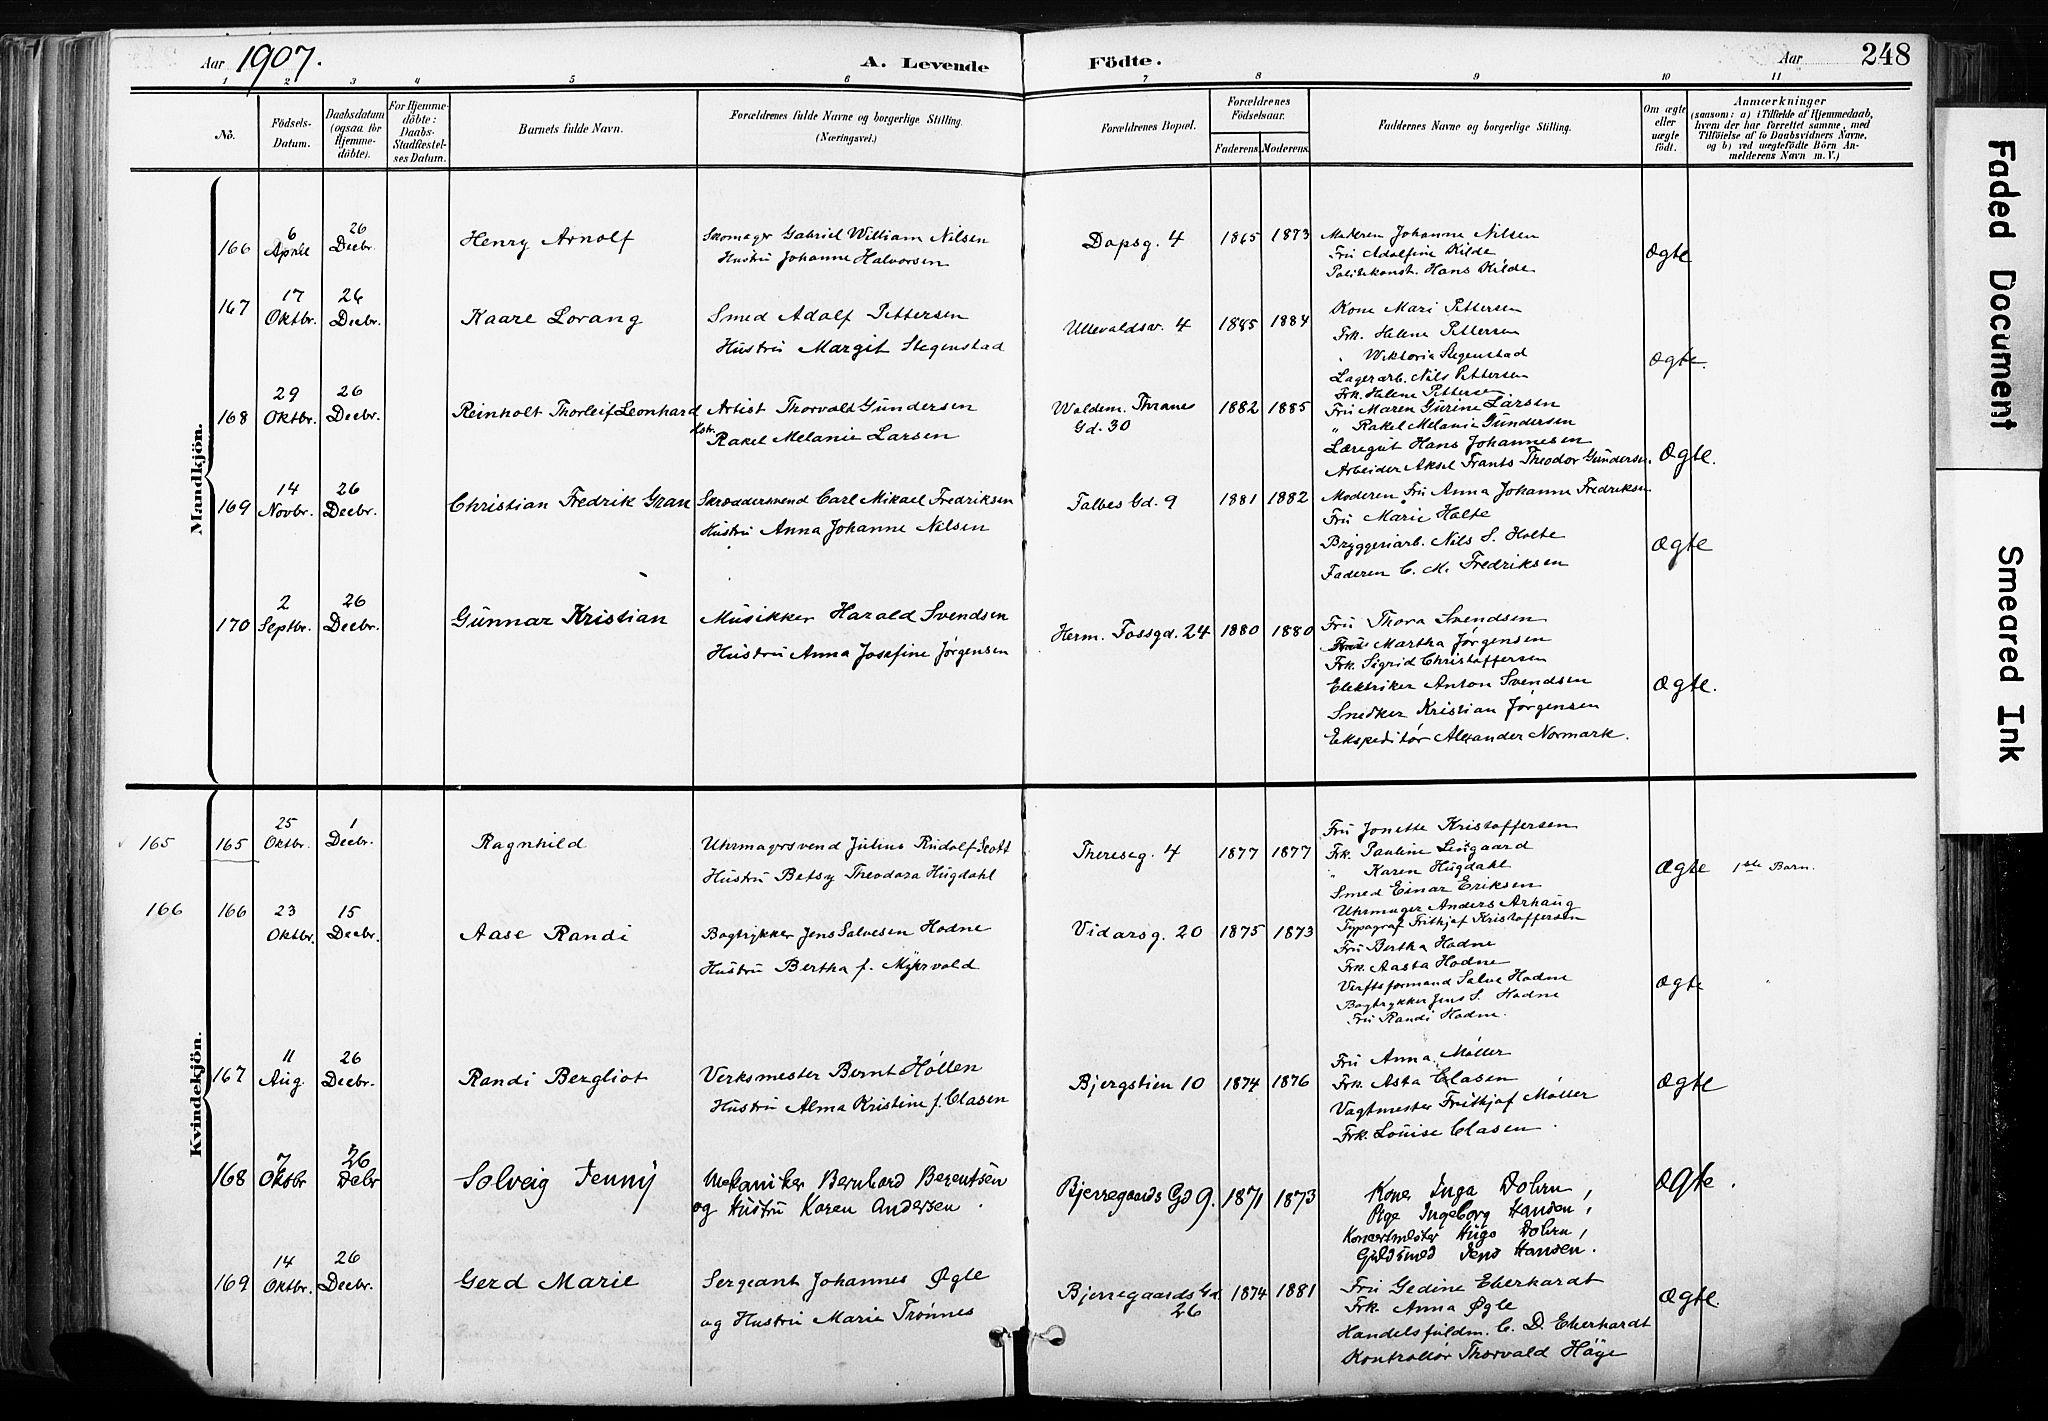 Aar 1907. A. Levende Födte. Aar 248
1 2 3 4 5 6 7 8 9 10 11
No. Födsels-Datum. Daabsdatum (ogsaa for Hjemmedöbte). For Hjemmedöbte: Daabs-Stadfæstelses Datum. Barnets fulde Navn. Forældrenes fulde Navne og borgerlige Stilling. (Næringsvei.) Forældrenes Bopæl. Forældrenes Födselsaar. Faderens. Moderens. Faddernes Navne og borgerlige Stilling. Om ægte eller uægte födt. Anmærkninger (saasom: a) i Tilfælde af Hjemmedaab, hvem der har forrettet samme, med Tilföielse af to Daabsvidners Navne, og b) ved uægtefödte Börn Anmelderens Navn m. V.)
Mandkjön.
166 6 April 26 Decbr. Henry Arnolf Skomager Gabriel William Nilsen Dopsg. 4 1865 1873 Moderen Johanne Nilsen
Hustru Johanne Halvorsen Fru Adolfine Kilde Ægte
Politikonst. Hans Kilde
167 17 Oktbr. 26 Decbr. Kaare Lorang Smed Adolf Pettersen Ullevaldsv. 4 1885 1884 Kone Mari Pettersen
Hustru Margit Stegenstad Frk. Helene Pettersen
" Wiktoria Stegenstad Ægte.
Lagerarb. Nils Pettersen
Frk. Helene Pettersen
168 29 Oktbr. 26 Decbr. Reinholt Thorleif Leonhard Artist Thorvalt Gundersen Waldem. Thranes Gd. 30 1882 1885 Fru Maren Gurine Larsen
Hstr. Rakel Melanie Larsen " Rakel Melanie Gundersen
Læregut Hans Johannesen Ægte.
Arbeider Aksel Frants Theodor Gundersen.
169 14 Novbr. 26 Decbr. Christian Fredrik Gran Skræddersvend Carl Mikael Fredriksen Falbes Gd. 9 1881 1882 Moderen Fru Anna Johanne Fredriksen
Hustru Anna Johanne Nilsen Fru Marie Holte
Bryggeriarb. Nils S. Holte Ægte
Faderen C. M. Fredriksen
170 2 Septbr. 26 Decbr. Gunnar Kristian Musikker Harald Svendsen Herm. Fossgd. 24 1880 1880 Fru Thora Svendsen
Hustru Anna Josefine Jørgensen Frue Martha Jørgensen
Frk. Sigrid Christoffersen
Elektriker Anton Svendsen Ægte.
Snedker Kristian Jørgensen
Ekspeditør Alexander Normark.
Kvindekjön.
165 165 25 Oktbr. 1 Decbr. Ragnhild Uhrmagersvend Julius Rudolf Scott Thereseg. 4 1877 1877 Fru Jonette Kristoffersen
Hustru Betsy Theodora Hugdahl Frk. Pauline
" Karen Hugdahl Ægte 1ste Barn.
Smed Einar Eriksen
Uhrmager Anders Arhaug
Typograf Frithjof Kristoffersen
166 166 23 Oktbr. 15 Decbr. Aase Randi Bogtrykker Jens Salvesen Hodne Vidarsg. 20 1875 1873 Fru Bertha Hodne
Hustru Bertha f. Myhrvold Frk. Aasta Hodne
Verftsformand Salve Hodne Ægte "
Bogtrykker Jens S. Hodne
Fru Randi Hodne.
167 11 Aug. 26 Decbr. Randi Bergliot Verksmester Bernt Höllen Bjergstien 10 1874 1876 Fru Anna Møller
Hustru Alma Kristine f. Clasen Frk. Asta Clasen Ægte
Vagtmester Frithjof Møller
Frk. Louise Clasen.
168 7 Oktbr 26 Debr Solveig Jenny Mekaniker Bernhard Berentsen Bjerregaards Gd 9. 1871 1873 Kone Inga Dohrn, Ægte.
og Hustru Karen Andersen. Pige Ingeborg Hansen,
Koncertmester Hugo Dohrn,
Guldsmed Jens Hansen.
169 14 Oktbr. 26 Decbr. Gerd Marie Sergeant Johannes Øgle Bjerregaards Gd. 26 1874 1881 Fru Gedine Eberhardt
og Hustru Marie Trønnes Frk. Anna Øgle Ægte.
Handelsfuldm. C. D. Eberhardt
Kontrollör Thorvald Höye
Faded Document
Smeared Ink